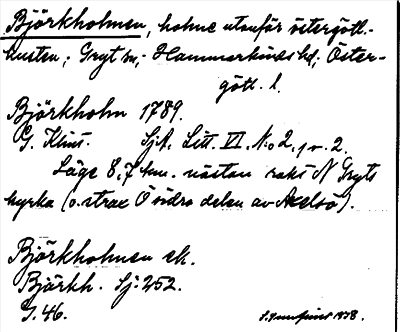 Björkholmen, holme utanför östergötl.-
kusten; Gryt sn, Hammarkinds hd, Öster-
götl. l.
Björkholm 1789.
G. Klint. SjA. Litt. VI. No 2, 2.
Läge 8,7 km. nästan rakt N Gryts
kyrka (o. strax Ö södra delen av Axelsö).
Björkholmen ek.
Björkh. Sj: 252.
G. 46.
1978.